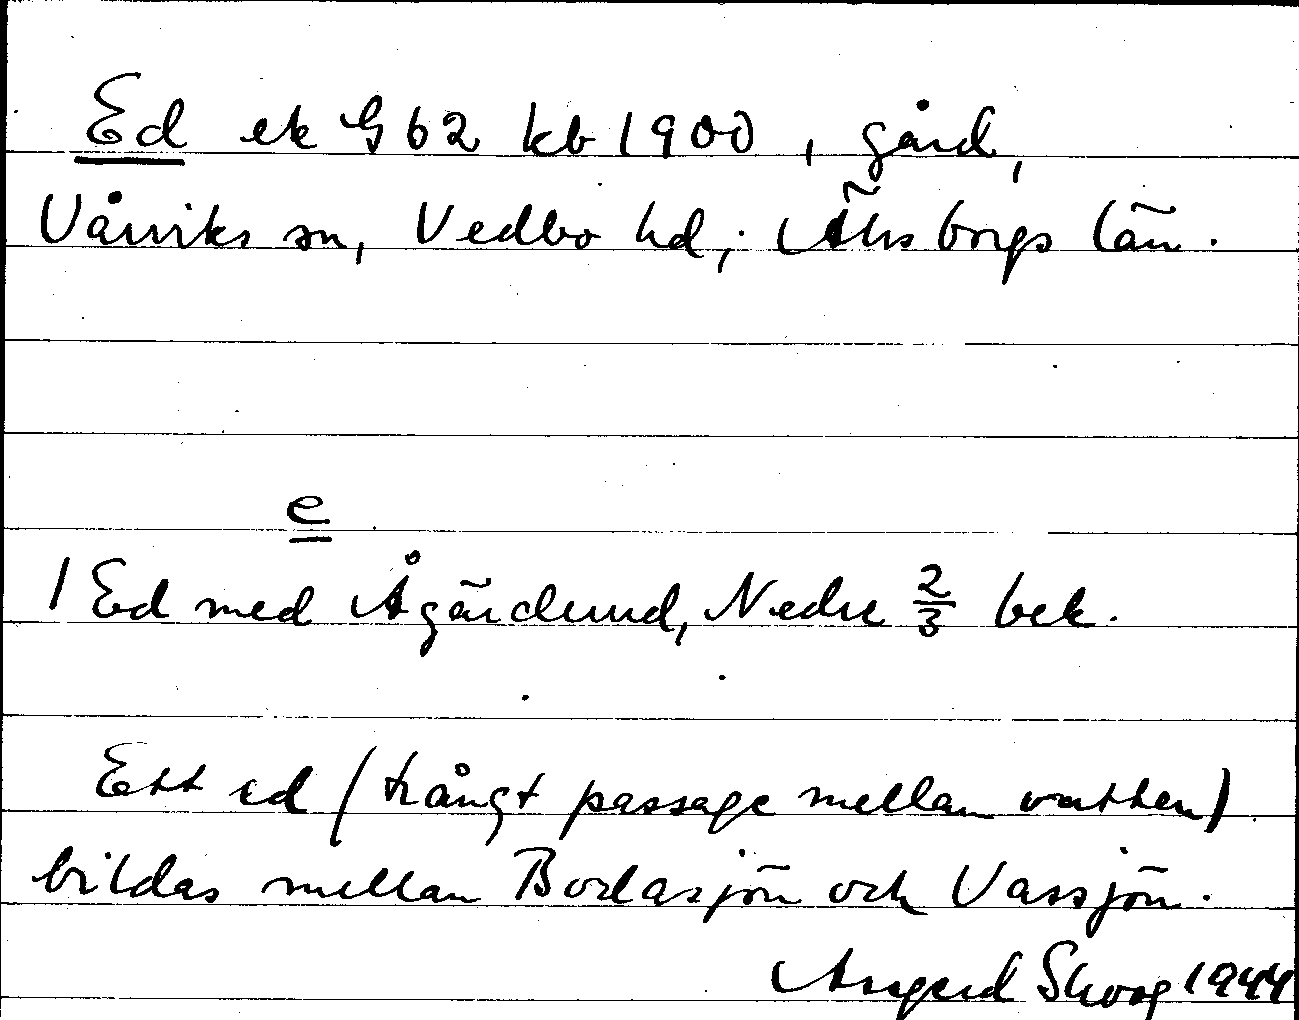 Ed ek G 62 kb 1900, gård,
Vårviks sn, Vedbo hd, Älvsborgs län.
e
1 Ed med Ågärdlund, Nedre 2/3 bek.
Ett ed (trångt passage mellan vatten)
bildas mellan Bodasjön och Vassjön.
Angerd Skoog 1944